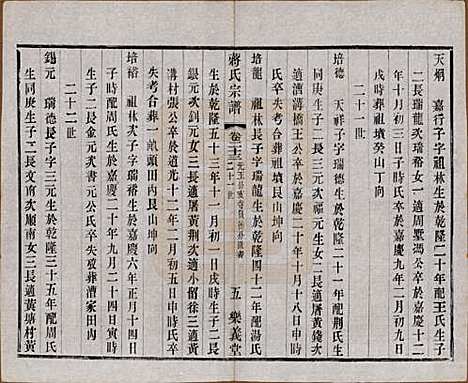 天炳 嘉行子字祖林生於乾隆二十年配王氏生子
二長瑞龍次瑞裕女一適周墅馮公卒於嘉慶十二
年十月初三日子時氏卒於嘉慶九年二月初九日
戌時葬祖墳癸山丁向
二十一世
培德 天祥子字瑞德生於乾隆二十一年配荆氏生
子同庚生子二長元三次福元生女二長適屠黃錢次
適濟溝橋王公卒於嘉慶二十年十月十八日申時氏
失考合葬祖墳艮山坤向
培龍 祖林長子字瑞龍生於乾隆四十二年配湯氏
蔣氏宗譜
卷二十三
二十一世
五 樂義堂
生於乾隆五十三年十一月初一日戌時生子二長
銀元次釗元生女三長適屠黃荆次適黃塘何三適
溝村張公卒於道光十二年二月初五日申時氏卒
失考合葬一畝頭田內艮山坤向
培裕 祖林次子字瑞裕生於嘉慶六年正月十四日
子時配周氏生於嘉慶二十年九月二十四日寅時
生子二長金元次書元公氏卒失攷葬漕家田內
二十二世
錫元 瑞德長子生於乾隆三十五年配周氏
生同庚生子二長文南次順南女三長適黃塘村黃